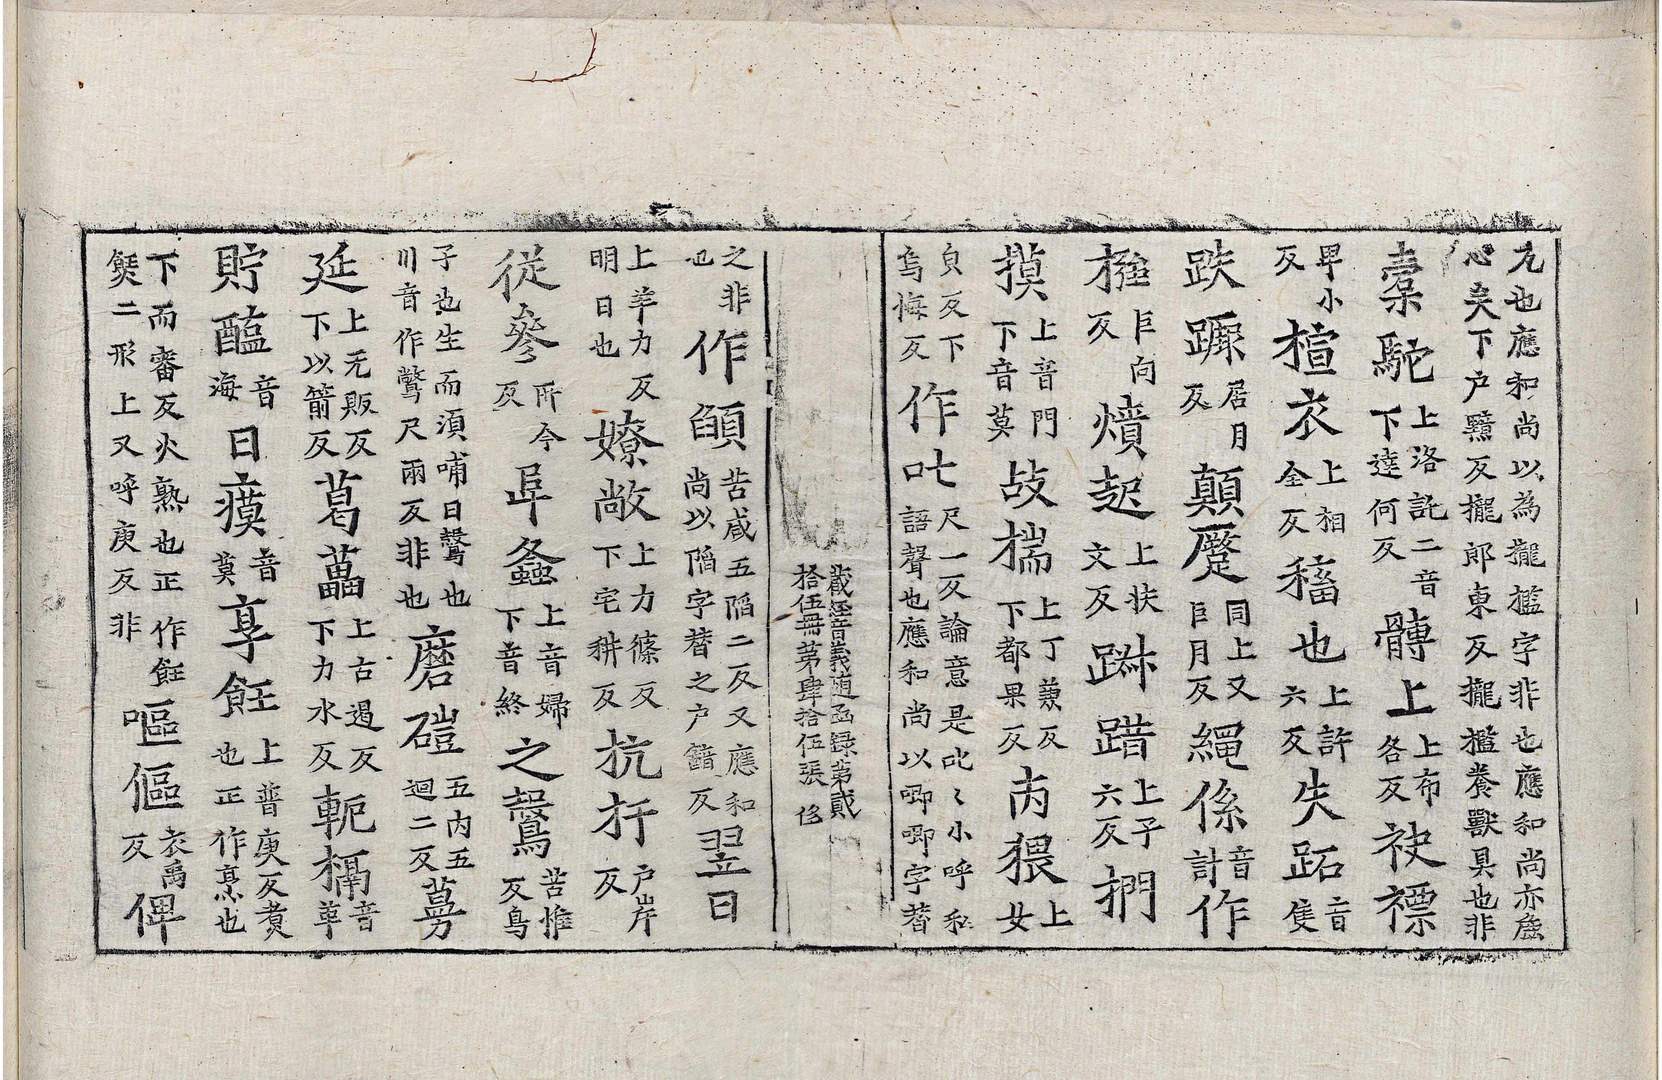 尢也應和尚以為攏檻字非也應和尚亦厐
心矣下户黤反攏郎東反攏檻養獸具也非
橐駝上洛託二音下達何反髆上上布各反袂褾
卑小反楦衣上相全反稸也上許六反失跖音隻
跌蹶居月反顛蹷同上又巨月反繩係音計作
㩀巨向反燌起上扶文反踧踖上子六反捫
摸上音門下音莫敁㨃上丁兼反下都果反肉猥上女
𠂤反下烏悔反作叱尺一反論意是叱〻小呼私語聲也應和尚以唧唧字替
藏經音義隨函録第貳拾伍冊第肆拾伍張 侈
之非也作䪼苦咸五陷二反又應和尚以陷字替之户韽反翌日
上羊力反明日也嫽敞上力篠反下宅耕反抗扞户岸反
從參所今反𨸏螽上音婦下音終之鷇苦惟反鳥
子也生而須哺曰鷇也川音作鷩尺兩反非也磨磑五内五迴二反蔓
延上无販反下以箭反葛藟上古遏反下力水反軛槅音革
貯醢音海曰瘼音莫享飪上普庚反煑也正作亯也
下而審反火熟也正作飪𩜾二形上又呼庚反非嘔傴衣禹反俾